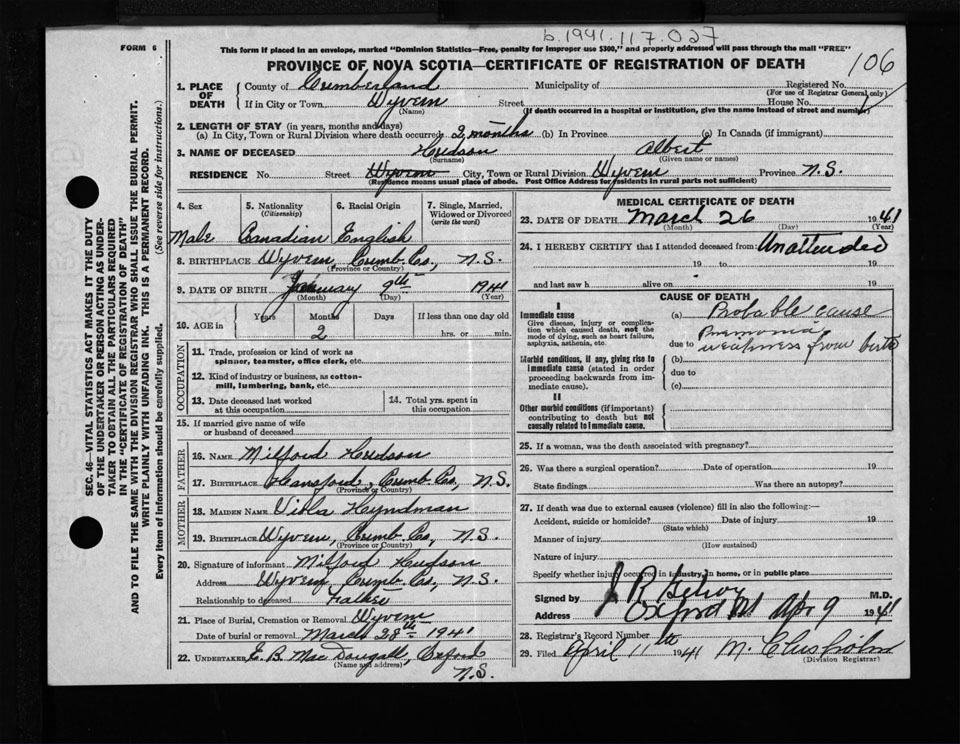 b.1941.117.027
FORM 6
This form if placed in an envelope, marked "Dominion Statistics—Free, penalty for improper use $300," and properly addressed will pass through the mail "FREE"
PROVINCE OF NOVA SCOTIA—CERTIFICATE OF REGISTRATION OF DEATH
106
1. PLACE OF DEATH
County of Cumberland Municipality of Registered No.
(For use of Registrar General only)
If in City or Town Wyvern Street House No.
(Name) (If death occurred in a hospital or institution, give the name instead of street and number)
2. LENGTH OF STAY (in years, months and days)
(a) In City, Town or Rural Division where death occurred 2 months (b) In Province (c) In Canada (if immigrant)
3. NAME OF DECEASED Hudson Albert
(Surname) (Given name or names)
RESIDENCE No. Street Wyvern City, Town or Rural Division Wyvern Province N.S.
(Residence means usual place of abode. Post Office Address for residents in rural parts not sufficient)
4. Sex 5. Nationality (Citizenship) 6. Racial Origin 7. Single, Married, Widowed or Divorced (write the word)
Male Canadian English
8. BIRTHPLACE Wyvern, Cumb. Co., N.S.
(Province or Country)
9. DATE OF BIRTH January 9th 1941
(Month) (Day) (Year)
10. AGE in Years Months Days If less than one day old
2 hrs. or min.
OCCUPATION
11. Trade, profession or kind of work as spinner, teamster, office clerk, etc.
12. Kind of industry or business, as cotton-mill, lumbering, bank, etc.
13. Date deceased last worked at this occupation 14. Total yrs. spent in this occupation
15. If married give name of wife or husband of deceased
FATHER
16. NAME Milford Hudson
17. BIRTHPLACE Hansford, Cumb. Co., N.S.
(Province or Country)
MOTHER
18. MAIDEN NAME Viola Hyndman
19. BIRTHPLACE Wyvern, Cumb. Co., N.S.
(Province or Country)
20. Signature of informant Milford Hudson
Address Wyvern, Cumb. Co., N.S.
Relationship to deceased Father
21. Place of Burial, Cremation or Removal Wyvern
Date of burial or removal March 28th 1941
22. UNDERTAKER E. B. MacDougall, Oxford
(Name and address) N.S.
MEDICAL CERTIFICATE OF DEATH
23. DATE OF DEATH March 26 1941
(Month) (Day) (Year)
24. I HEREBY CERTIFY that I attended deceased from: Unattended
19 to 19
and last saw h alive on 19
CAUSE OF DEATH
I
Immediate cause
Give disease, injury or complication which caused death, not the mode of dying, such as heart failure, asphyxia, asthenia, etc.
(a) Probable cause
Pneumonia
due to weakness from birth
Morbid conditions, if any, giving rise to immediate cause (stated in order proceeding backwards from immediate cause).
(b)
due to
(c)
II
Other morbid conditions (if important) contributing to death but not causally related to immediate cause.
25. If a woman, was the death associated with pregnancy?
26. Was there a surgical operation? Date of operation 19
State findings Was there an autopsy?
27. If death was due to external causes (violence) fill in also the following:—
Accident, suicide or homicide? Date of injury 19
(State which)
Manner of injury
(How sustained)
Nature of injury
Specify whether injury occurred in industry, in home, or in public place
Signed by J R M.D.
Address Oxford NS Date Apr 9 1941
28. Registrar's Record Number
29. Filed April 11th 1941 M. Chisholm
(Division Registrar)
SEC. 46—VITAL STATISTICS ACT MAKES IT THE DUTY
OF THE UNDERTAKER OR PERSON ACTING AS UNDERTAKER TO OBTAIN ALL THE PARTICULARS REQUIRED
IN THE "CERTIFICATE OF REGISTRATION OF DEATH"
AND TO FILE THE SAME WITH THE DIVISION REGISTRAR WHO SHALL ISSUE THE BURIAL PERMIT.
WRITE PLAINLY WITH UNFADING INK. THIS IS A PERMANENT RECORD.
Every item of information should be carefully supplied. (See reverse side for instructions.)